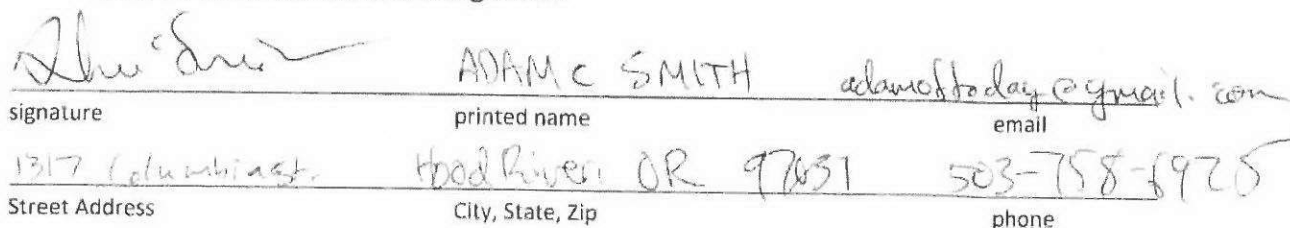 ADAM C SMITH adamoftoday@gmail.com
signature printed name email
1317 Columbia st. Hood River, OR 97031 503-758-6925
Street Address City, State, Zip phone